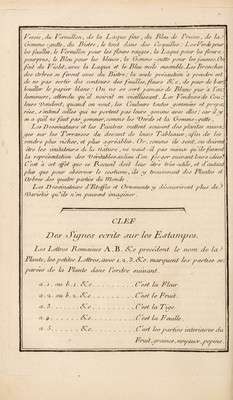 Versie, du Vermillon, de la Laque fine, du Bleu de Prusse, de la
Gomme-gutte, du Bistre, le tout dans des Coquilles: Les Verds pour
les feuilles, le Vermillon pour les fleurs rouges, la Laque pour les fleurs
pourpres, le Bleu pour les bleues; la Gomme-gutte pour les jaunes. On
fait du Violet, avec la Laque et le Bleu mêlé ensemble. Les Ecorches
des Arbres se feront avec du Bistre; la seule précaution à prendre est
de ne pas sortir des contours des feuilles, fleurs &c. de peur de bar-
bouiller le papier blanc: On ne se sert jamais de Blanc pour l'en-
luminure, attendu qu'il noircit en vieillissant. Les Vendeurs de Cou-
leurs vendent, quand on veut, les Couleurs toutes gommées et prépa-
rées, s'entend celles qui ne portent pas leur gomme avec elles; car il y
en a qu'il ne faut pas gommer, comme les Verds et la Gomme-gutte.
Les Dessinateurs et les Peintres mettent souvent des plantes
sur les Terrasses du devant de leurs Tableaux, afin de les
rendre plus riches, et plus agréables. Or, comme ils sont, ou doivent
être les imitateurs de la nature, ne vaut-il pas mieux qu'ils fassent
la représentation des Véritables au lieu d'en forger suivant leurs idées?
C'est à cet effet que ce Recueil doit leur être très-utile, et d'autant
plus que pour observer le costume, ils y trouveront des Plantes et
Arbres des quatre parties du Monde.
Les Dessinateurs d'Etoffes et Ornements y découvriront plus de
Variétés qu'ils n'en peuvent imaginer.
CLEF
Des Signes ecrits sur les Estampes.
Les Lettres Romaines A. B. &c précédent le nom de la
Plante, les petites Lettres, avec 1. 2. 3. &c. marquent les parties sé-
parées de la Plante dans l'ordre suivant.
a. 1. ou b. 1. &c. C'est la Fleur.
a. 2. ou b. 2. &c. C'est le Fruit.
a. 3. &c. C'est la Tige
a. 4. &c. C'est la Feuille.
a. 5. &c. C'est les parties interieures du
Fruit, graines, noyaux, pepins.